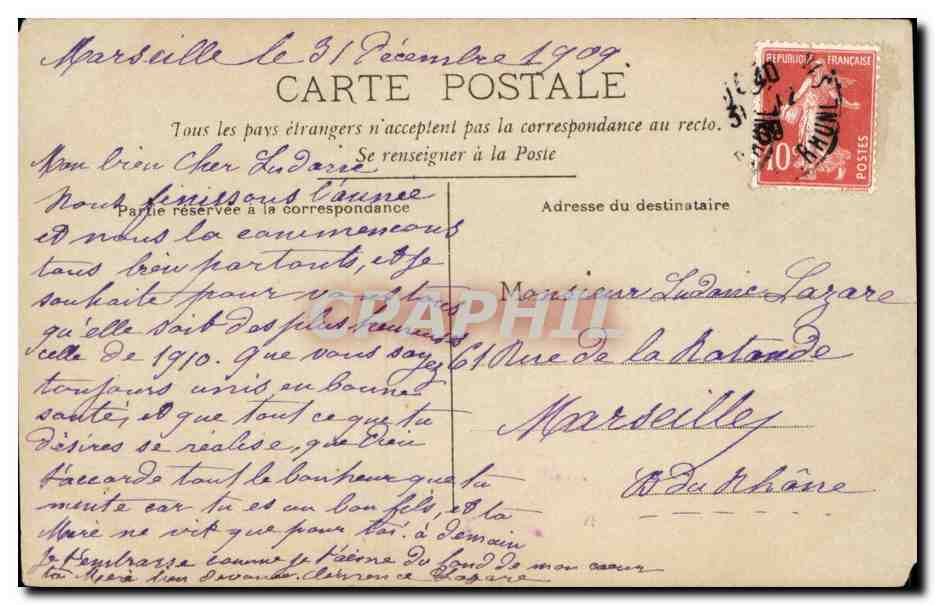 Marseille le 31 Décembre 1909
CARTE POSTALE
Tous les pays étrangers n'acceptent pas la correspondance au recto.
Se renseigner à la Poste
REPUBLIQUE FRANÇAISE
10c
POSTES
Mon bien Cher Ludovic
Nous finissons l'année
Partie réservée à la correspondance
et nous la commencons
tous bien portants, et Je
souhaite pour vous tous
qu'elle soit des plus heureuses
celle de 1910. Que vous soyez
toujours unis en bonne
santé, et que tout ce que tu
désires se réalise, que Dieu
t'accorde tout le bonheur que tu
mérite car tu es un bon fils, et ta
Mère ne vit que pour toi. à demain
Je t'embrasse comme je t'aime du fond de mon coeur
ta Mère bien dévouée Clémence Lazare
Adresse du destinataire
Monsieur Ludovic Lazare
61 Rue de la Rotonde
Marseille
B du Rhône
CPAPHIL